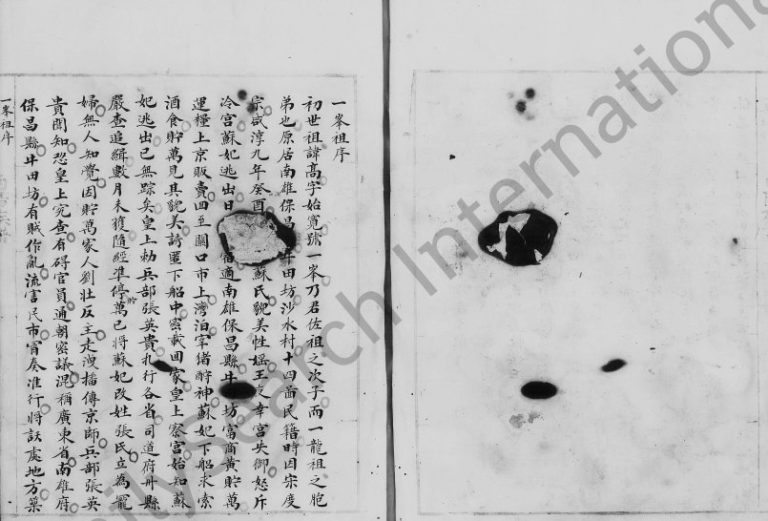 一峯祖序
初世祖諱高字始寬號一峯乃君佐祖之次子而一龍祖之胞
弟也原居南雄保昌 井田坊沙水村十四圖民籍時因宋度
宗咸淳九年癸酉 蘇氏貌美性婬王 幸宮失御怒斥
冷宮蘇妃逃出日 富適南雄保昌縣牛 坊富商黃貯萬
運糧上京販賣回至關口市上灣泊宰猪酧神蘇妃下船求索
酒食貯萬見其貌美誘匿下船中密載回家皇上察宮始知蘇
妃逃出已無踪矣皇上勅兵部張英貴札行各省司道府州縣
嚴查追緝數月未獲隨經準停貯萬已將蘇妃改姓張氏立為寵
婦無人知覺因貯萬家人劉壯反主走洩播傳京師兵部張英
貴聞知恐皇上究查有碍官員通朝密議混稱廣東省南雄府
保昌縣牛田坊有賊作亂流害民市冒奏准行將該處地方築
一峯祖序
FamilySearch International